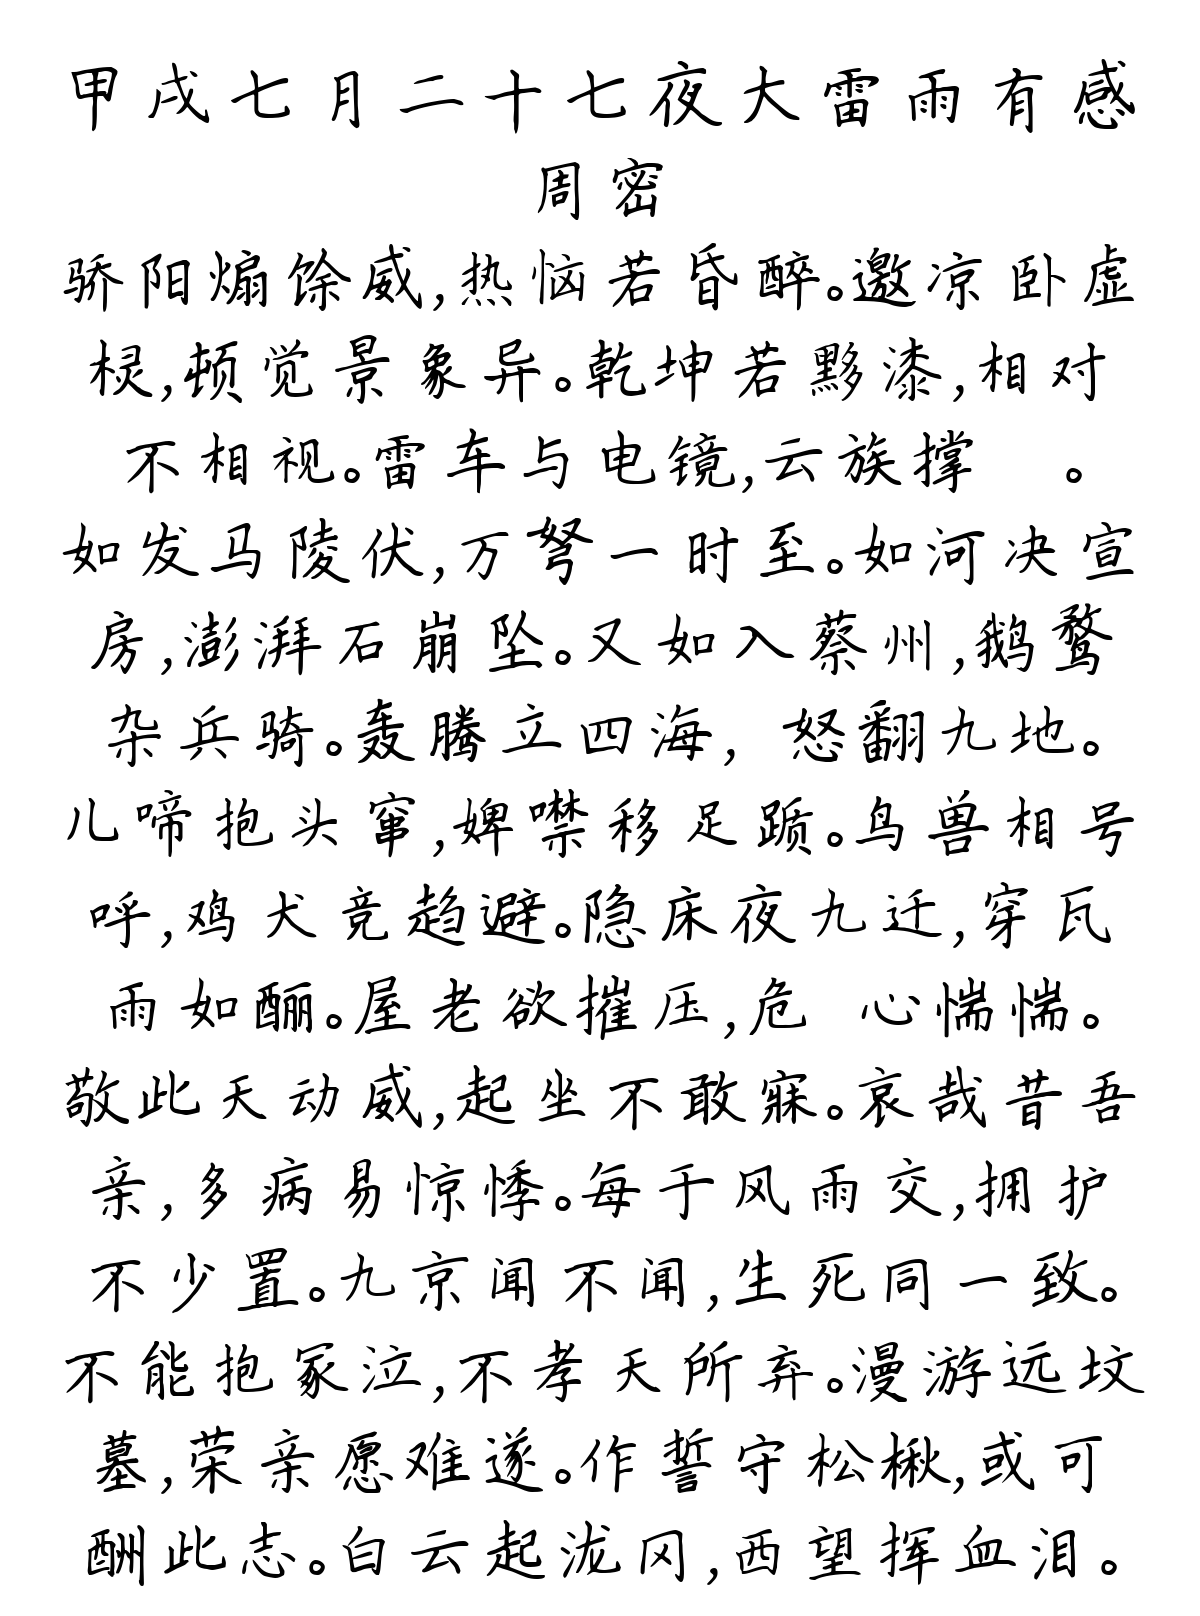 甲戌七月二十七夜大雷雨有感
周密
骄阳煽馀威,热恼若昏醉。邀凉卧虚
棂,顿觉景象异。乾坤若黟漆,相对
不相视。雷车与电镜,云族撑　。
如发马陵伏,万弩一时至。如河决宣
房,澎湃石崩坠。又如入蔡州,鹅鹜
杂兵骑。轰腾立四海, 怒翻九地。
儿啼抱头窜,婢噤移足踬。鸟兽相号
呼,鸡犬竞趋避。隐床夜九迁,穿瓦
雨如酾。屋老欲摧压,危 心惴惴。
敬此天动威,起坐不敢寐。哀哉昔吾
亲,多病易惊悸。每于风雨交,拥护
不少置。九京闻不闻,生死同一致。
不能抱冢泣,不孝天所弃。漫游远坟
墓,荣亲愿难遂。作誓守松楸,或可
酬此志。白云起泷冈,西望挥血泪。